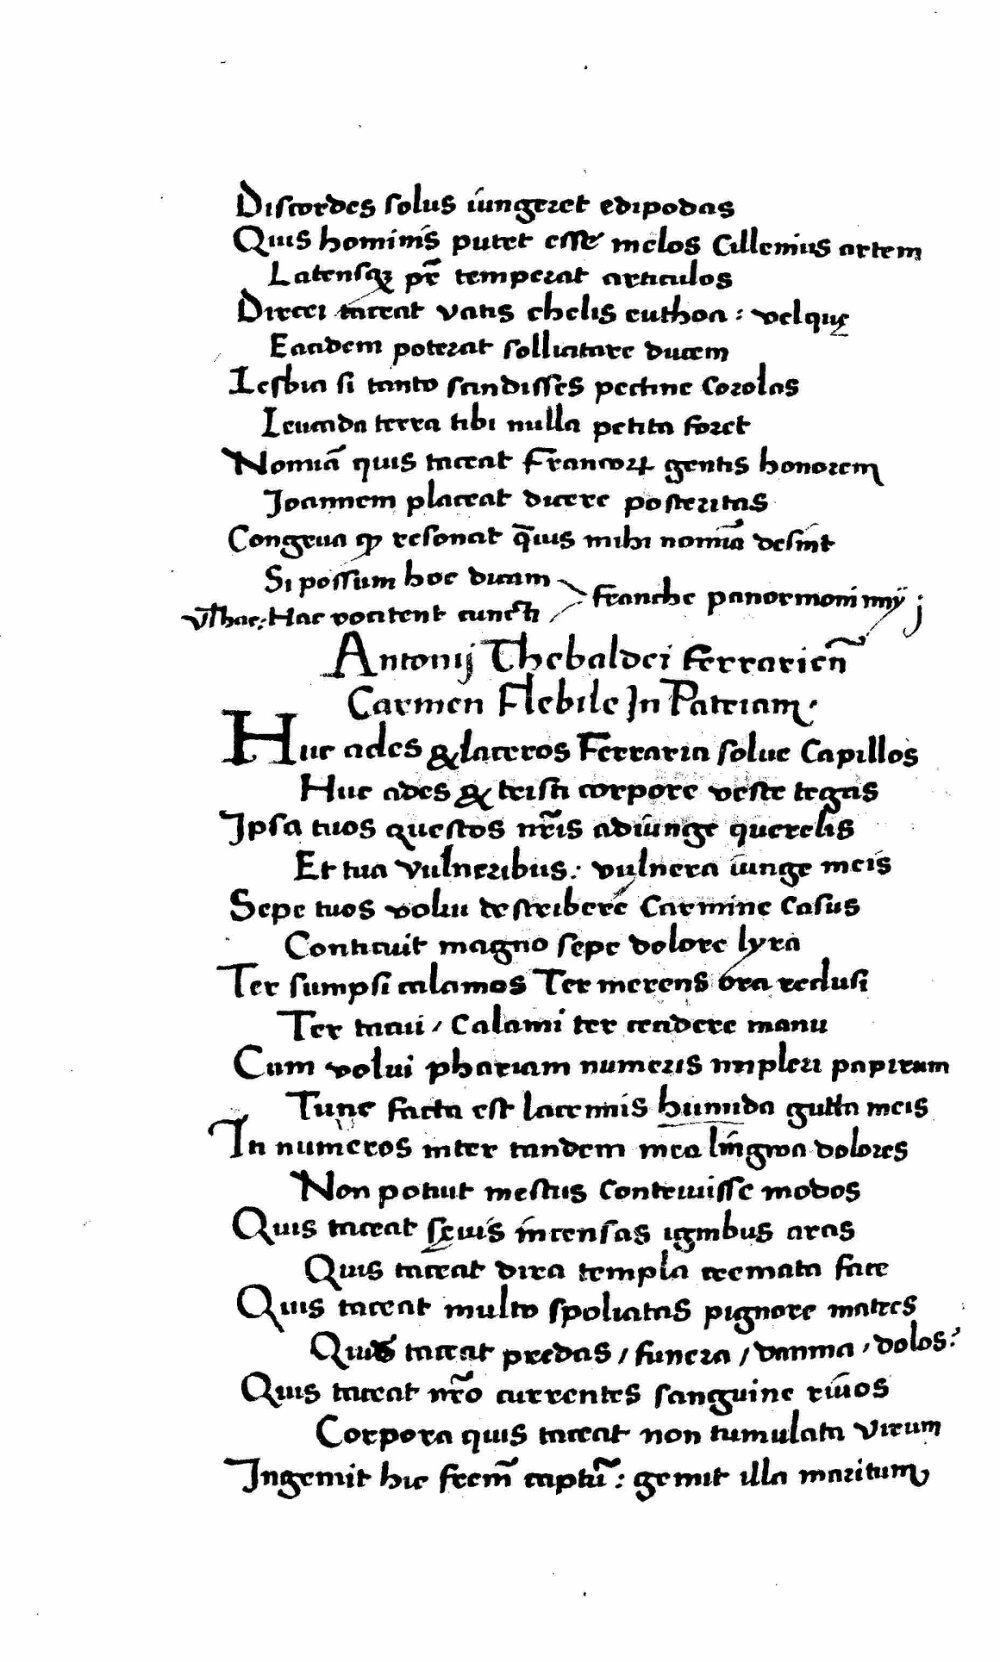 Discordes solus iungeret edipodas
Quis hominis putet esse melos Cillenius artem
Latensqꝫ pr̄e temperat articulos
Dircei taceat vatis chelis euthoa : velquę
Eandem poterat sollicitare ducem
Lesbia si tanto scandisses pectine Corolas
Leucada terra tibi nulla petita foret
Nomīa quis taceat Francoꝝ gentis honorem
Joannem placeat dicere posteritas
Congrua ꝙ resonat q̄uis mihi nomīa desint
Si possum hoc dicam
Franche panormom
Vl hac: Hac vocitent cuncti
Antonij Thebaldei Ferrarien̄
Carmen Flebile In Patriam.
Huc ades & laceros Ferraria solue Capillos
Huc ades & tristi corpore veste tegas
Ipsa tuos questos nr̄is adiunge querelis
Et tua Vulneribus: vulnera iunge meis
Sepe tuos volui describere Carmine Casus
Conticuit magno sepe dolore lyra
Ter sumpsi calamos Ter merens ora reclusi
Ter tacui / Calami ter cecidere manu
Cum volui phariam numeris impleri papirum
Tunc facta est lacrimis humida gutta meis
In numeros inter tandem mea lingwa dolores
Non potuit mestus Contenuisse modos
Quis taceat sęuis incensas ignibus aras
Quis taceat dira templa cremata face
Quis taceat multo spoliatas pignore matres
Quis taceat predas / funera / damna / dolos?
Quis taceat nr̄o currentes sanguine riuos
Corpora quis taceat non tumulata virum
Ingemit hic frēm captū : gemit illa maritum